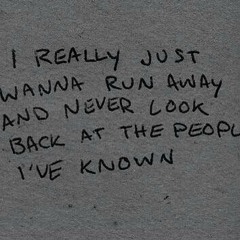 I REALLY JUST
WANNA RUN AWAY
AND NEVER LOOK
BACK AT THE PEOPL
I'VE KNOWN